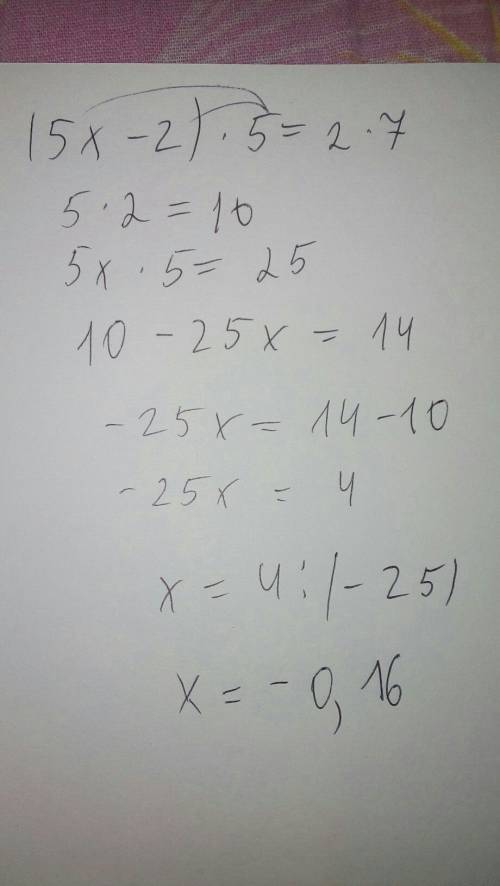 (5x - 2) · 5 = 2 · 7
5 · 2 = 10
5x · 5 = 25
10 - 25x = 14
- 25x = 14 - 10
- 25x = 4
x = 4 : (- 25)
x = - 0, 16